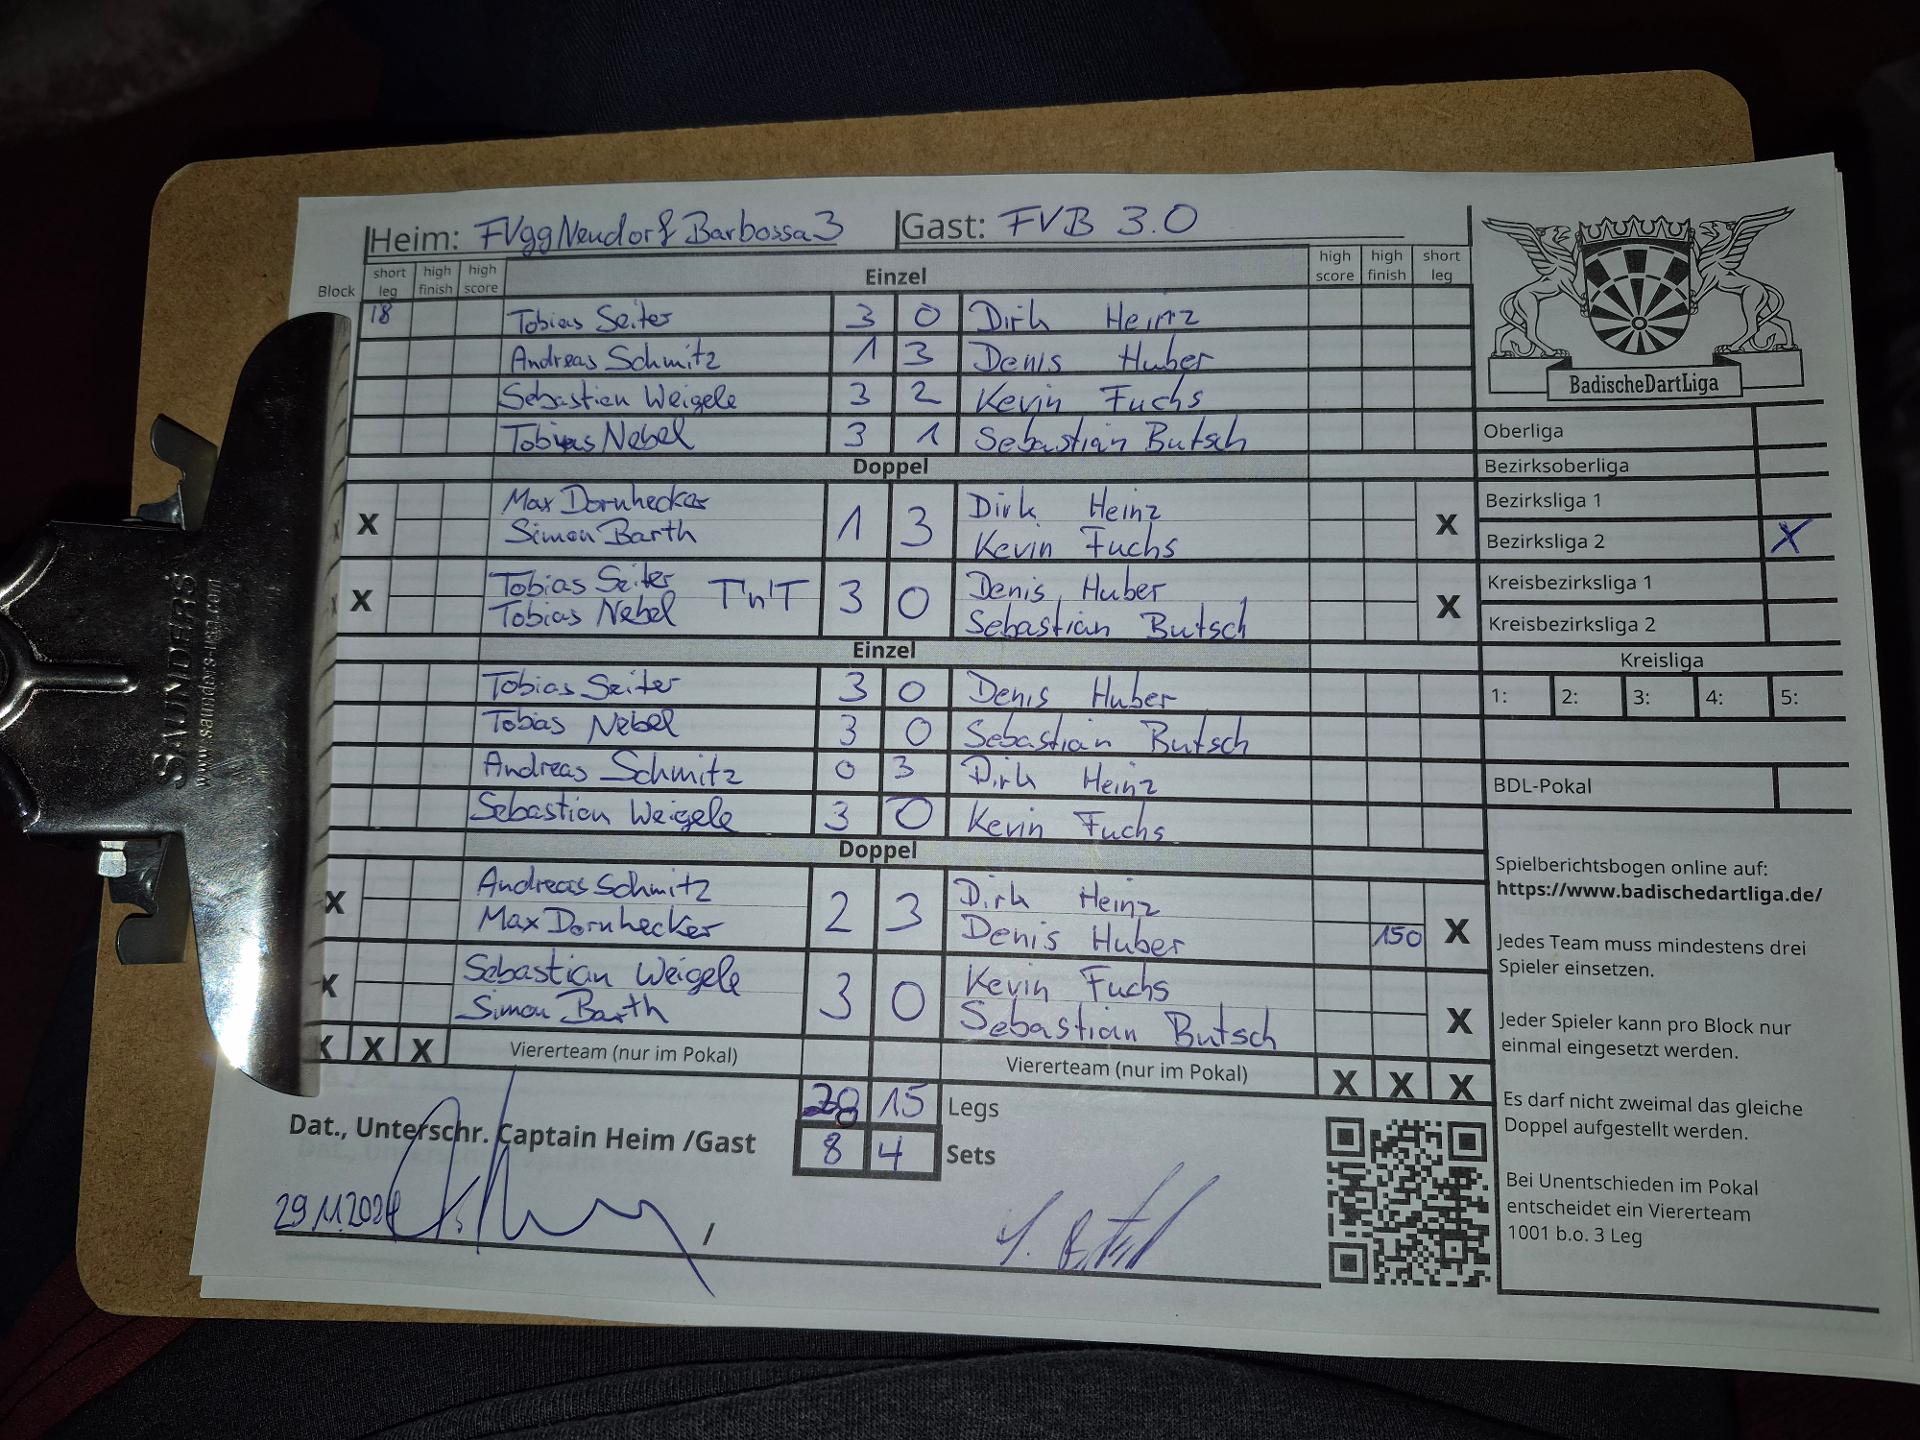 Heim: FVgg Neudorf Barbossa 3 Gast: FVB 3.0
Block short leg high finish high score Einzel high score high finish short leg
18 Tobias Seiter 3 0 Dirk Heinz
Andreas Schmitz 1 3 Denis Huber
Sebastian Weigele 3 2 Kevin Fuchs
Tobias Nebel 3 1 Sebastian Butsch
Doppel
X Max Dornhecker 1 3 Dirk Heinz X
Simon Barth Kevin Fuchs
X Tobias Seiter T'n'T 3 0 Denis Huber X
Tobias Nebel Sebastian Butsch
Einzel
Tobias Seiter 3 0 Denis Huber
Tobias Nebel 3 0 Sebastian Butsch
Andreas Schmitz 0 3 Dirk Heinz
Sebastian Weigele 3 0 Kevin Fuchs
Doppel
X Andreas Schmitz 2 3 Dirk Heinz X
Max Dornhecker Denis Huber 150
X Sebastian Weigele 3 0 Kevin Fuchs X
Simon Barth Sebastian Butsch
X X X Viererteam (nur im Pokal) Viererteam (nur im Pokal) X X X
28 15 Legs
Dat., Unterschr. Captain Heim /Gast 8 4 Sets
29.11.2024 /
BadischeDartLiga
Oberliga
Bezirksoberliga
Bezirksliga 1
Bezirksliga 2 X
Kreisbezirksliga 1
Kreisbezirksliga 2
Kreisliga
1: 2: 3: 4: 5:
BDL-Pokal
Spielberichtsbogen online auf:
https://www.badischedartliga.de/
Jedes Team muss mindestens drei
Spieler einsetzen.
Jeder Spieler kann pro Block nur
einmal eingesetzt werden.
Es darf nicht zweimal das gleiche
Doppel aufgestellt werden.
Bei Unentschieden im Pokal
entscheidet ein Viererteam
1001 b.o. 3 Leg
SAUNDERS
www.saunders-usa.com